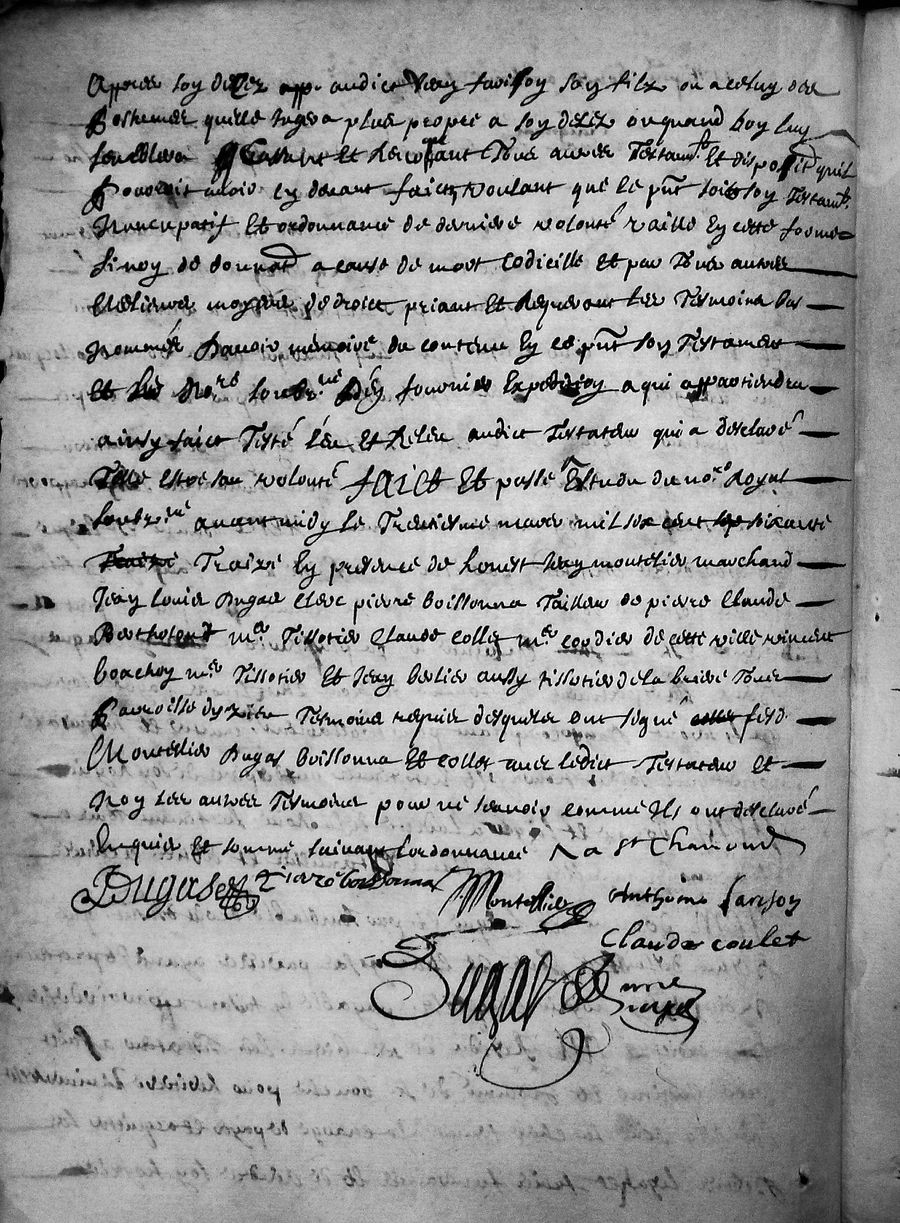 Apprès soy decex app. audict Jean farisoy son filz ou a celuy des
Postumes quelle jugera plus propre a soy decex ou quand bon luy
semblera Cassant Et Revocant Tous autres Testamt. Et disposition quil
Pourroit avoir cy devant faict, voulant que le pnt soit soy Testamt.
Nuncupatif Et ordonnance de derniere volonté vaille en cette forme
sinoy de donnaon a cause de mort Codicille Et par Tous autres
meilieurs moyens de droict priant Et Requerant les Tesmoins bas
nommés Davoir mémoire du contenu En ce pnt soy Testament
Et les nores soubz.né Dey fournir Expedition a qui appartiendra
ainsy faict Testé Leu Et Releu audict Testateur qui a desclaré
Telle estre sa volonté faict Et passé Estude du nore Royal
soubz.né avant midy le Treziesme mars mil six cent soixante
Traize En presence de honest Jean montellier marchand
Jean Louis Dugas clerc pierre boissonna Tailleur de pierre Claude
Bertholend mer Tissotier Claude Collet mer cordier de cette ville vincent
boachoy mer Tissotier Et Jean berlier aussy tissotier de la brive Tous
Parroisse dyzieu Tesmoins requis desquels ont signé lesd.
Montellier Dugas boissonna Et Collet avec ledict Testateur et
Noy les autres Tesmoins pour ne scavoir comme Ils ont desclaré
Enquis Et sommé suivant l'ordonnance A St Chamond
JDugas Piare boisonna Montellier Anthoine farisoy
Claude coulet
Dugas